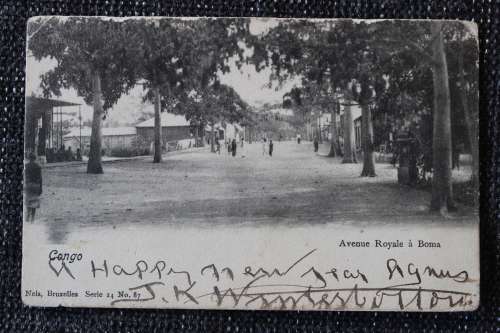 Avenue Royale à Boma
Congo
A Happy new year Agnus
Nels, Bruxelles Serie 14 No. 87
J. K Winterbottom